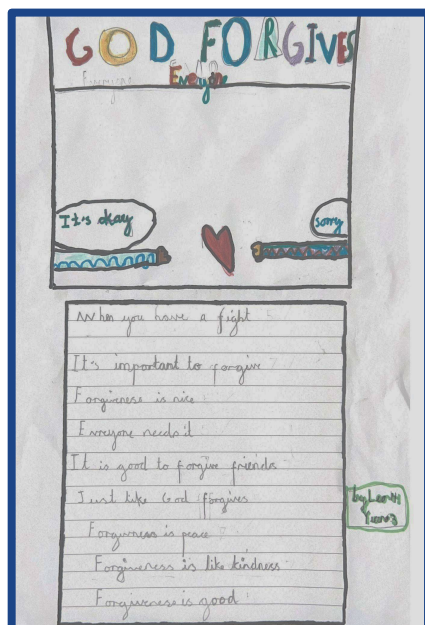 GOD FORGIVES
Everyone
Eveyone
It's okay
sorry
When you have a fight
It's important to forgive
Forgiveness is nice
Everyone needs it
It is good to forgive friends
Just like God forgives
Forgiveness is peace
Forgiveness is like kindness
Forgiveness is good
by
Year 3